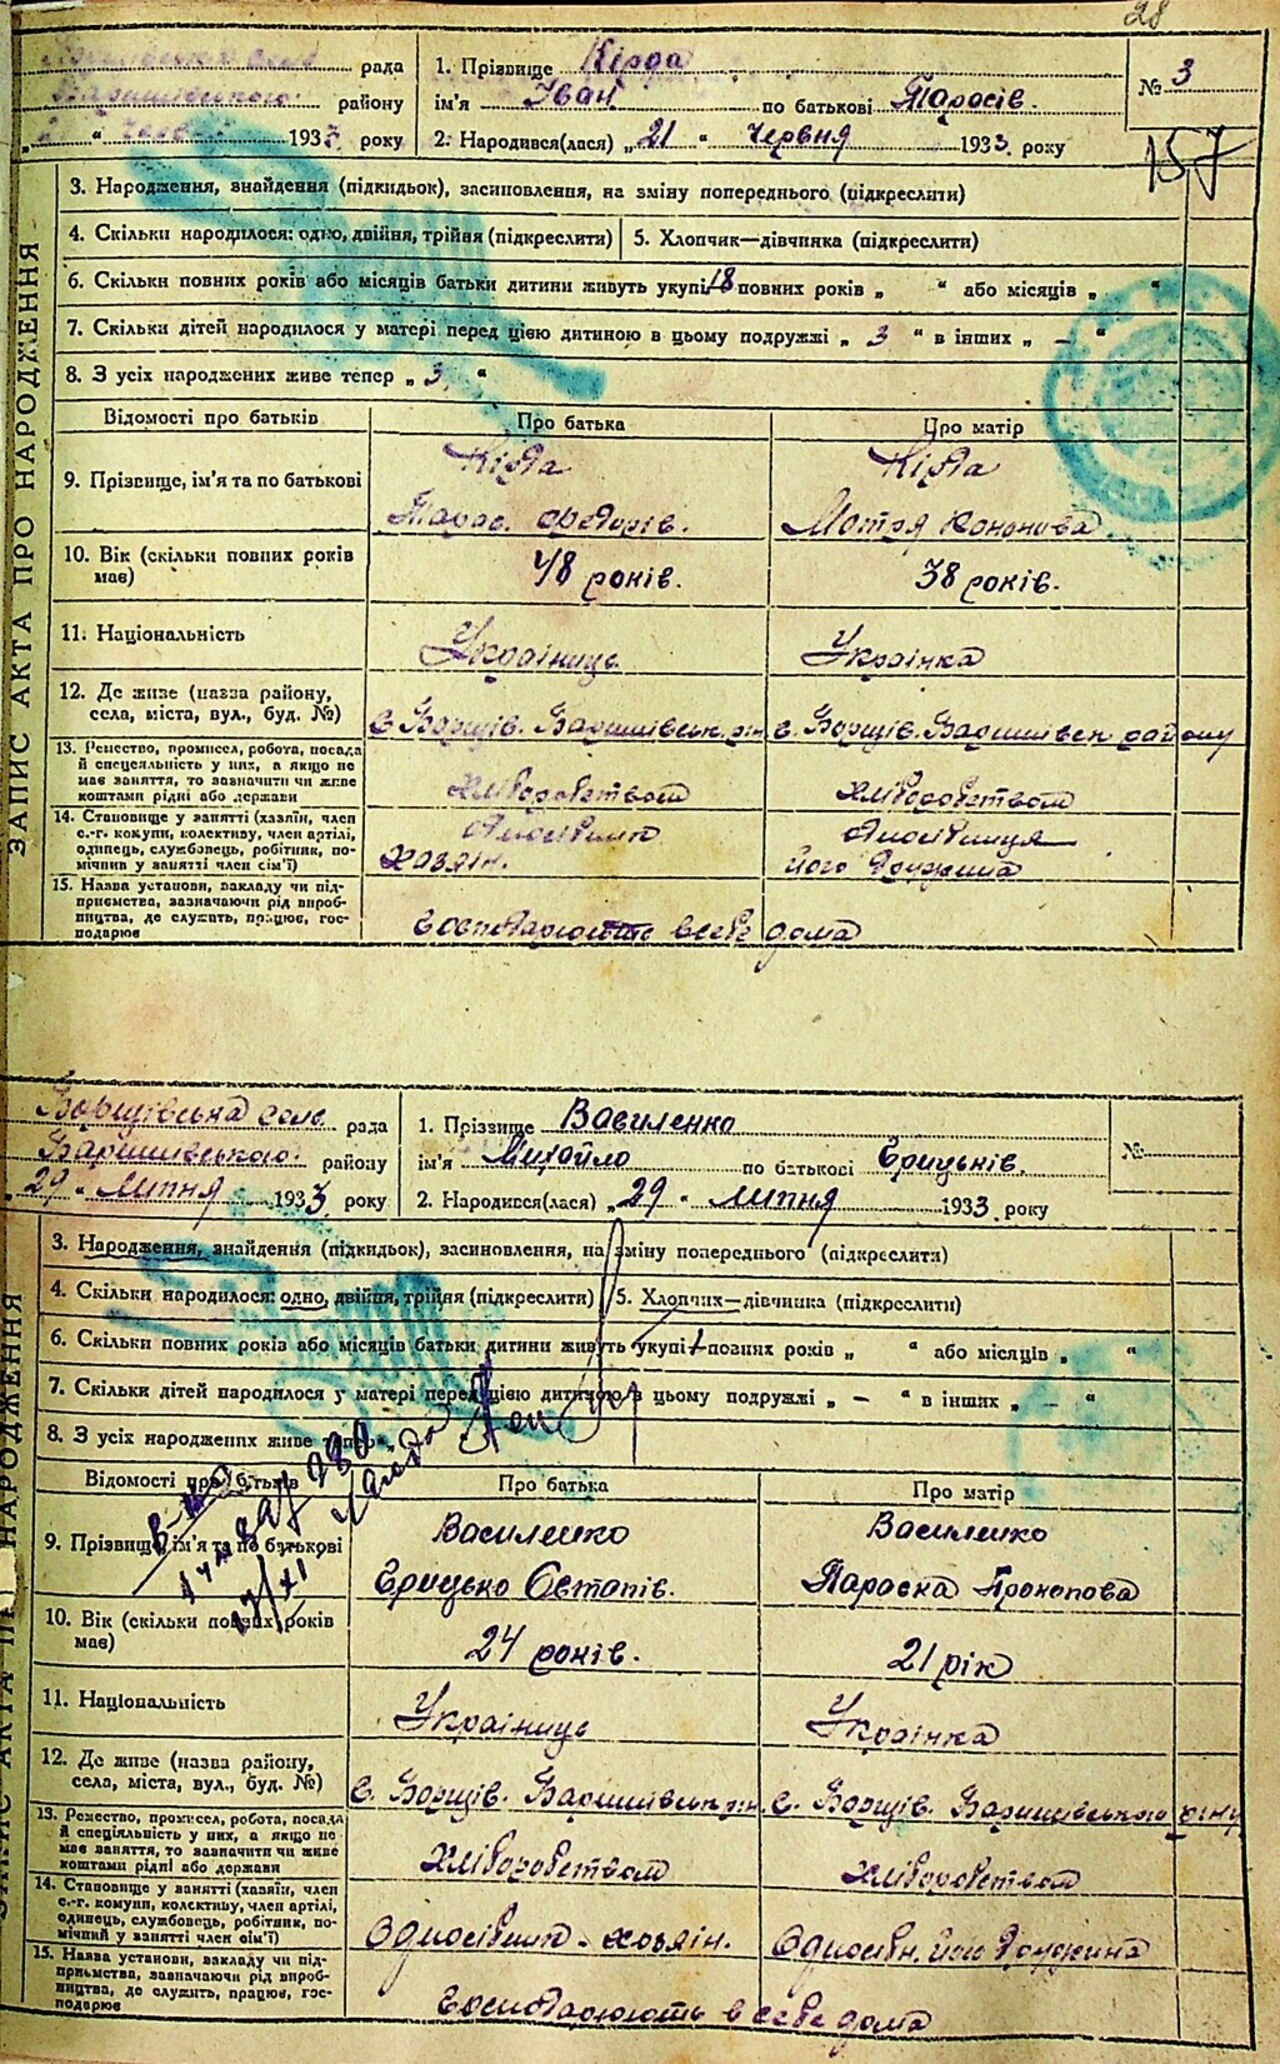 28
рада
1. Прізвище Кірда
№ 3
Баришівського району
ім'я Іван по батькові Тарасів.
1933 року
2. Народився(лася) „21 " червня 1933. року
157
ЗАПИС АКТА ПРО НАРОДЖЕННЯ
3. Народження, знайдення (підкидьок), засиновлення, на зміну попереднього (підкреслити)
4. Скільки народилося: одно, двійня, трійня (підкреслити) 5. Хлопчик—дівчинка (підкреслити)
6. Скільки повних років або місяців батьки дитини живуть укупі 18 повних років „ " або місяців „ "
7. Скільки дітей народилося у матері перед цією дитиною в цьому подружжі „ 3 " в інших „ — "
8. З усіх народжених живе тепер „ 3 "
Відомості про батьків Про батька Про матір
Кірда Кірда
9. Прізвище, ім'я та по батькові
Тарас. Федорів. Мотря Кононова
10. Вік (скільки повних років має) 48 років. 38 років.
11. Національність Українець Українка
12. Де живе (назва району,
села, міста, вул., буд. №) с. Борщів. Баришівськ. р-н с. Борщів. Баришівськ району
13. Ремество, промисел, робота, посада
й спеціяльність у них, а якщо не
має заняття, то зазначити чи живе
коштами рідні або держави
Хліборобством Хліборобством
14. Становище у занятті (хазяїн, член
с.-г. комуни, колективу, член артілі,
одинець, службовець, робітник, по-
мічник у занятті член сім'ї)
хазяїн. його дружина
15. Назва установи, закладу чи під-
приємства, зазначаючи рід вироб-
ництва, де служать, працює, гос-
подарює
Господарюють в себе дома
Борщівська сель. рада
1. Прізвище Василенко
№
Баришівського. району
ім'я Михайло по батькові Грицьків.
„29 " Липня 1933. року
2. Народився(лася) „29 " липня 1933. року
3. Народження, знайдення (підкидьок), засиновлення, на зміну попереднього (підкреслити)
4. Скільки народилося: одно, двійня, трійня (підкреслити) 5. Хлопчик—дівчинка (підкреслити)
6. Скільки повних років або місяців батьки дитини живуть укупі 1 повних років „ " або місяців „ "
7. Скільки дітей народилося у матері перед цією дитиною в цьому подружжі „ — " в інших „ — "
8. З усіх народжених живе тепер „
Відомості про батьків Про батька Про матір
Василенко Василенко
9. Прізвище, ім'я та по батькові
17/XI
Грицько Остапів. Параска Прокопова
10. Вік (скільки повних років має) 24 років. 21 рік
11. Національність Українець Українка
12. Де живе (назва району,
села, міста, вул., буд. №) с. Борщів. Баришівськ р-н. с. Борщів. Баришівського р-ну
13. Ремество, промисел, робота, посада
й спеціяльність у них, а якщо не
має заняття, то зазначити чи живе
коштами рідні або держави
Хліборобством Хліборобством
14. Становище у занятті (хазяїн, член
с.-г. комуни, колективу, член артілі,
одинець, службовець, робітник, по-
мічний у занятті член сім'ї)
Одноосібник - хозяїн. Одноосібн. його дружина
15. Назва установи, закладу чи під-
приємства, зазначаючи рід вироб-
ництва, де служить, працює, гос-
подарює
Господарюють в себе дома